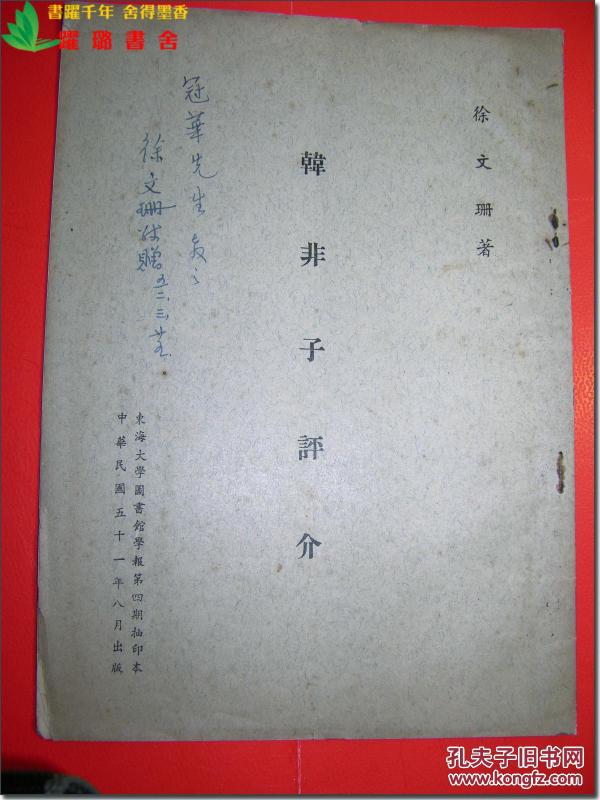 書躍千年 舍得墨香
躍璐書舍
徐文珊著
韓非子評介
冠華先生
徐文珊 贈
東海大學圖書館學報第四期抽印本
中華民國五十一年八月出版
孔夫子旧书网
www.kongfz.com